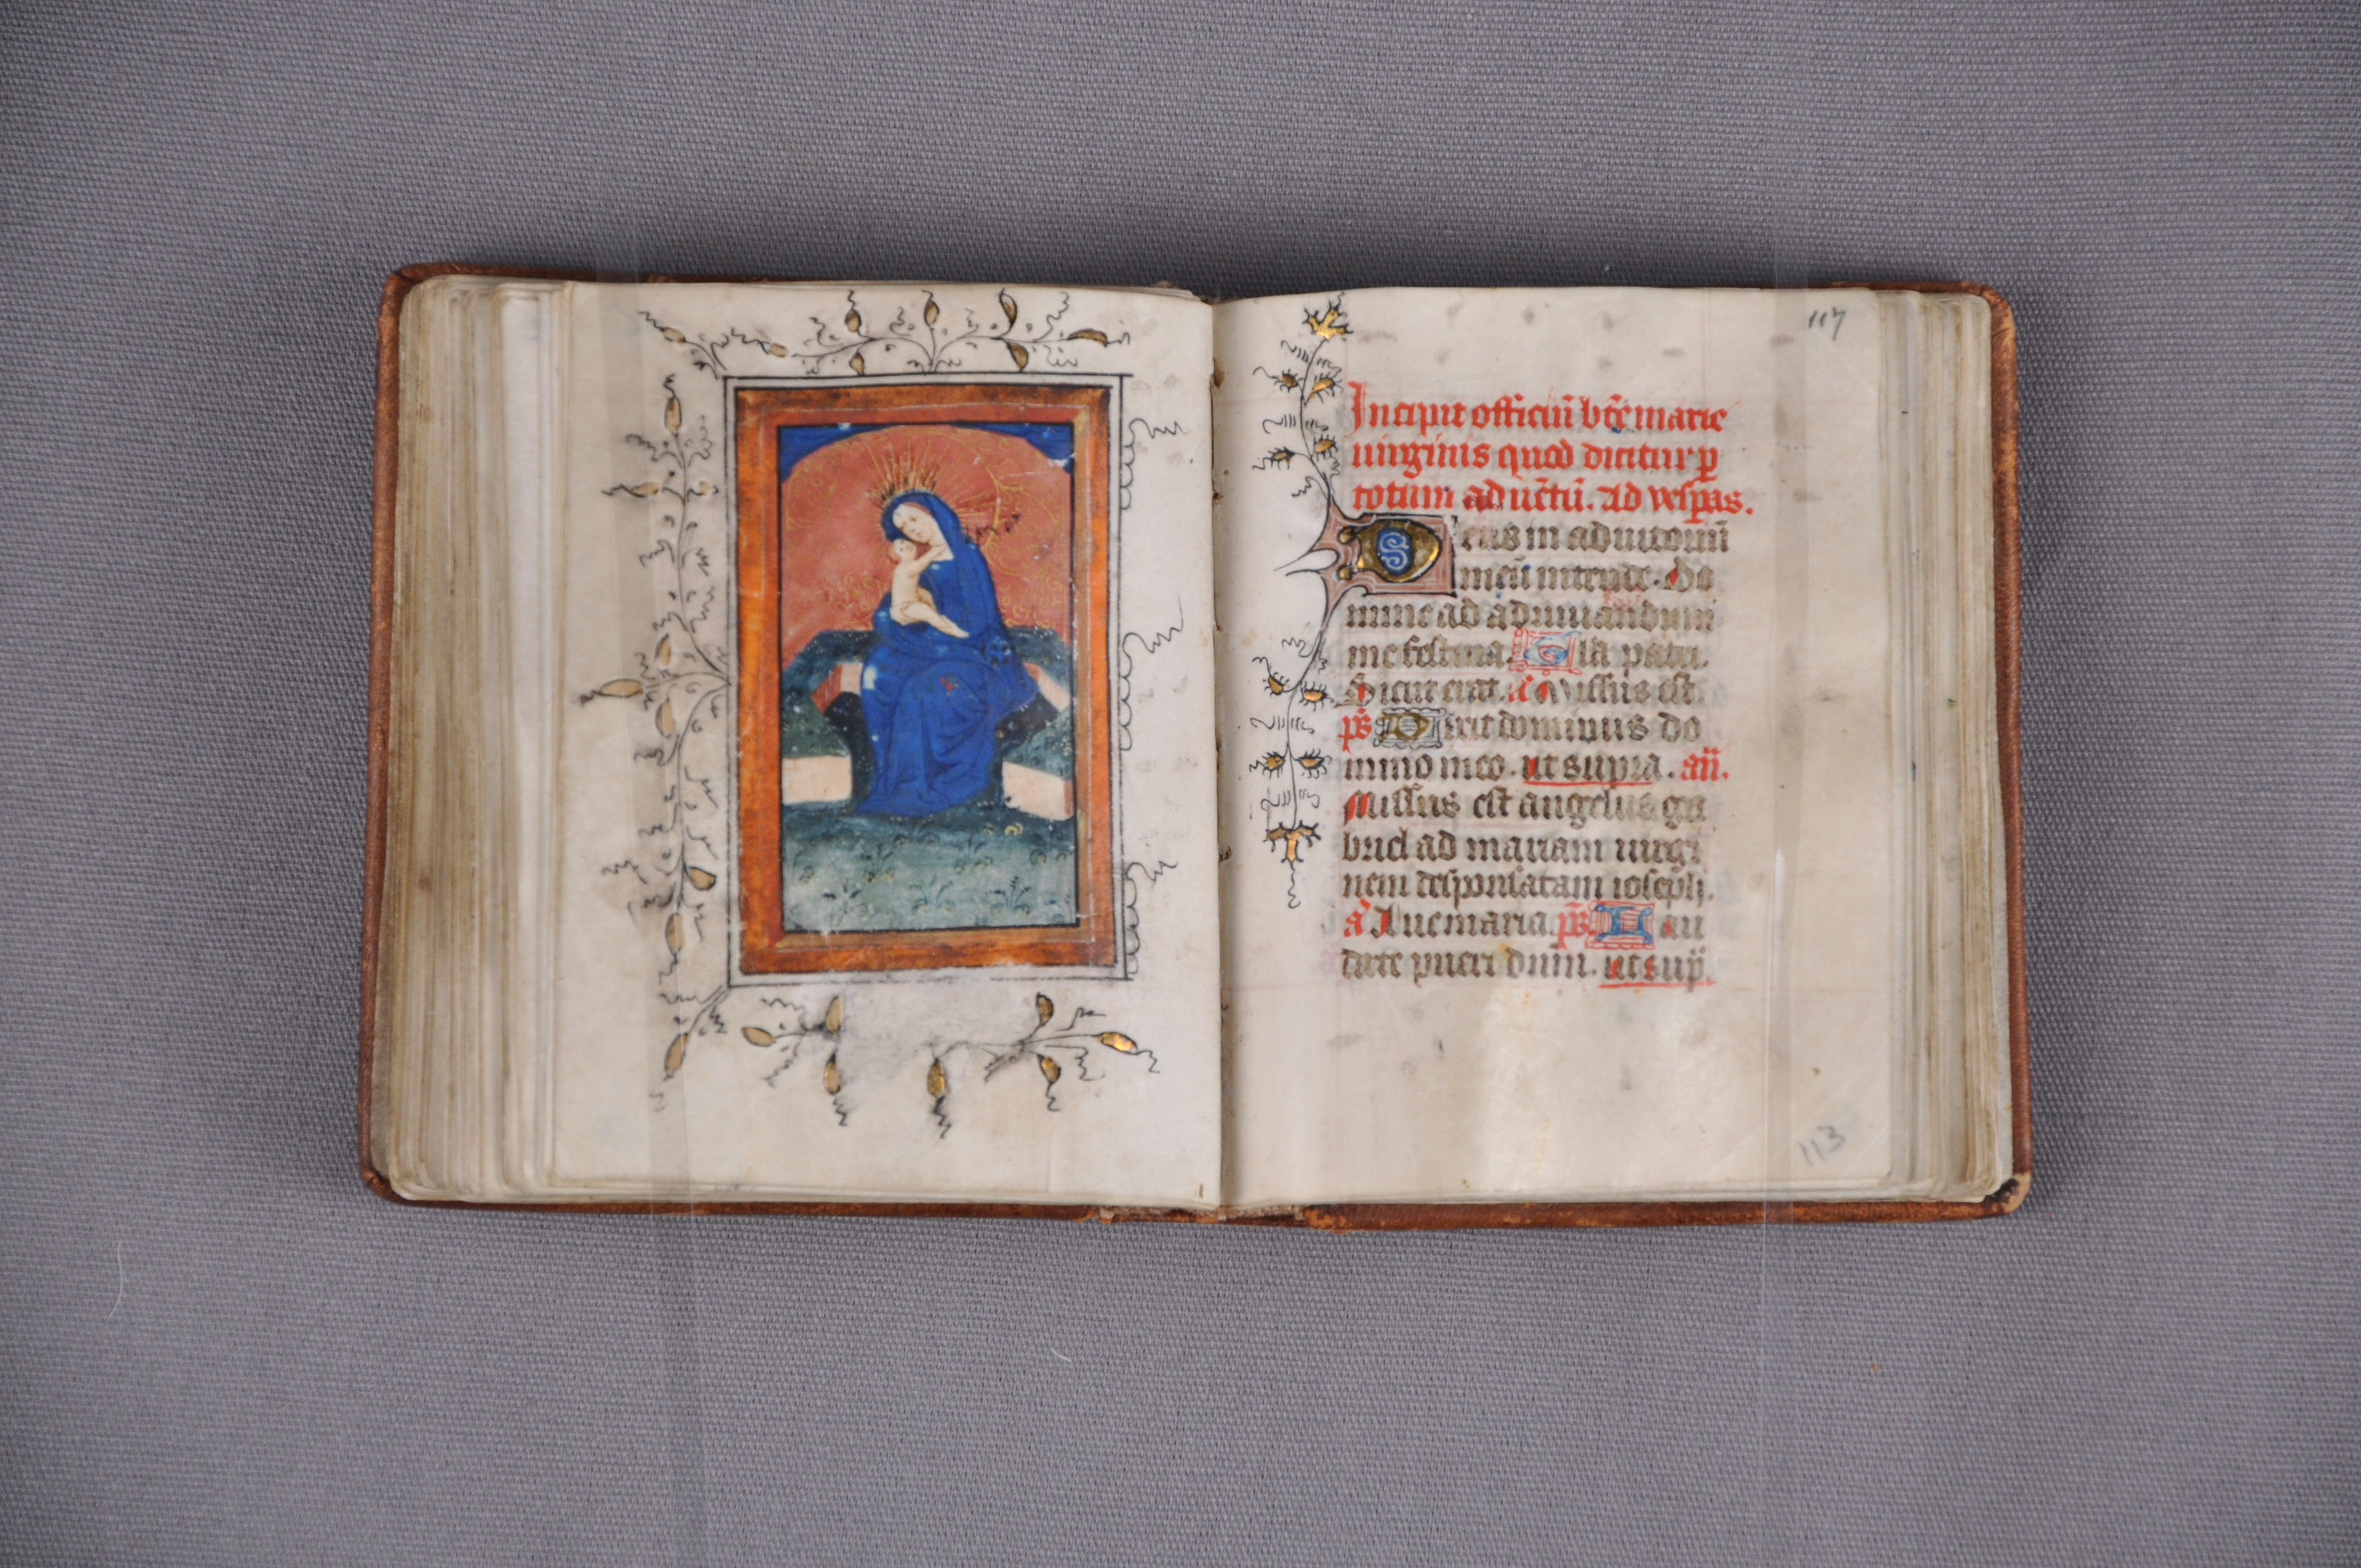 117
Incipit officiū bt̄e marie
uirginis quod dicitur ꝑ
totum aduētū. Ad vesꝑas.
Deus in adiutoriū
meū intende. Do
mine ad adiuuandum
me festina. Gl̄a patri.
Sicut erat. a Missus est.
ps̄ Dixit dominus do
mino meo. ut supra. añ.
Missus est angelus ga
briel ad mariam uirgi
nem desponsatam ioseph.
a Aue maria. ps̄ Lau
date pueri dnm̄. ut sup̄.
113